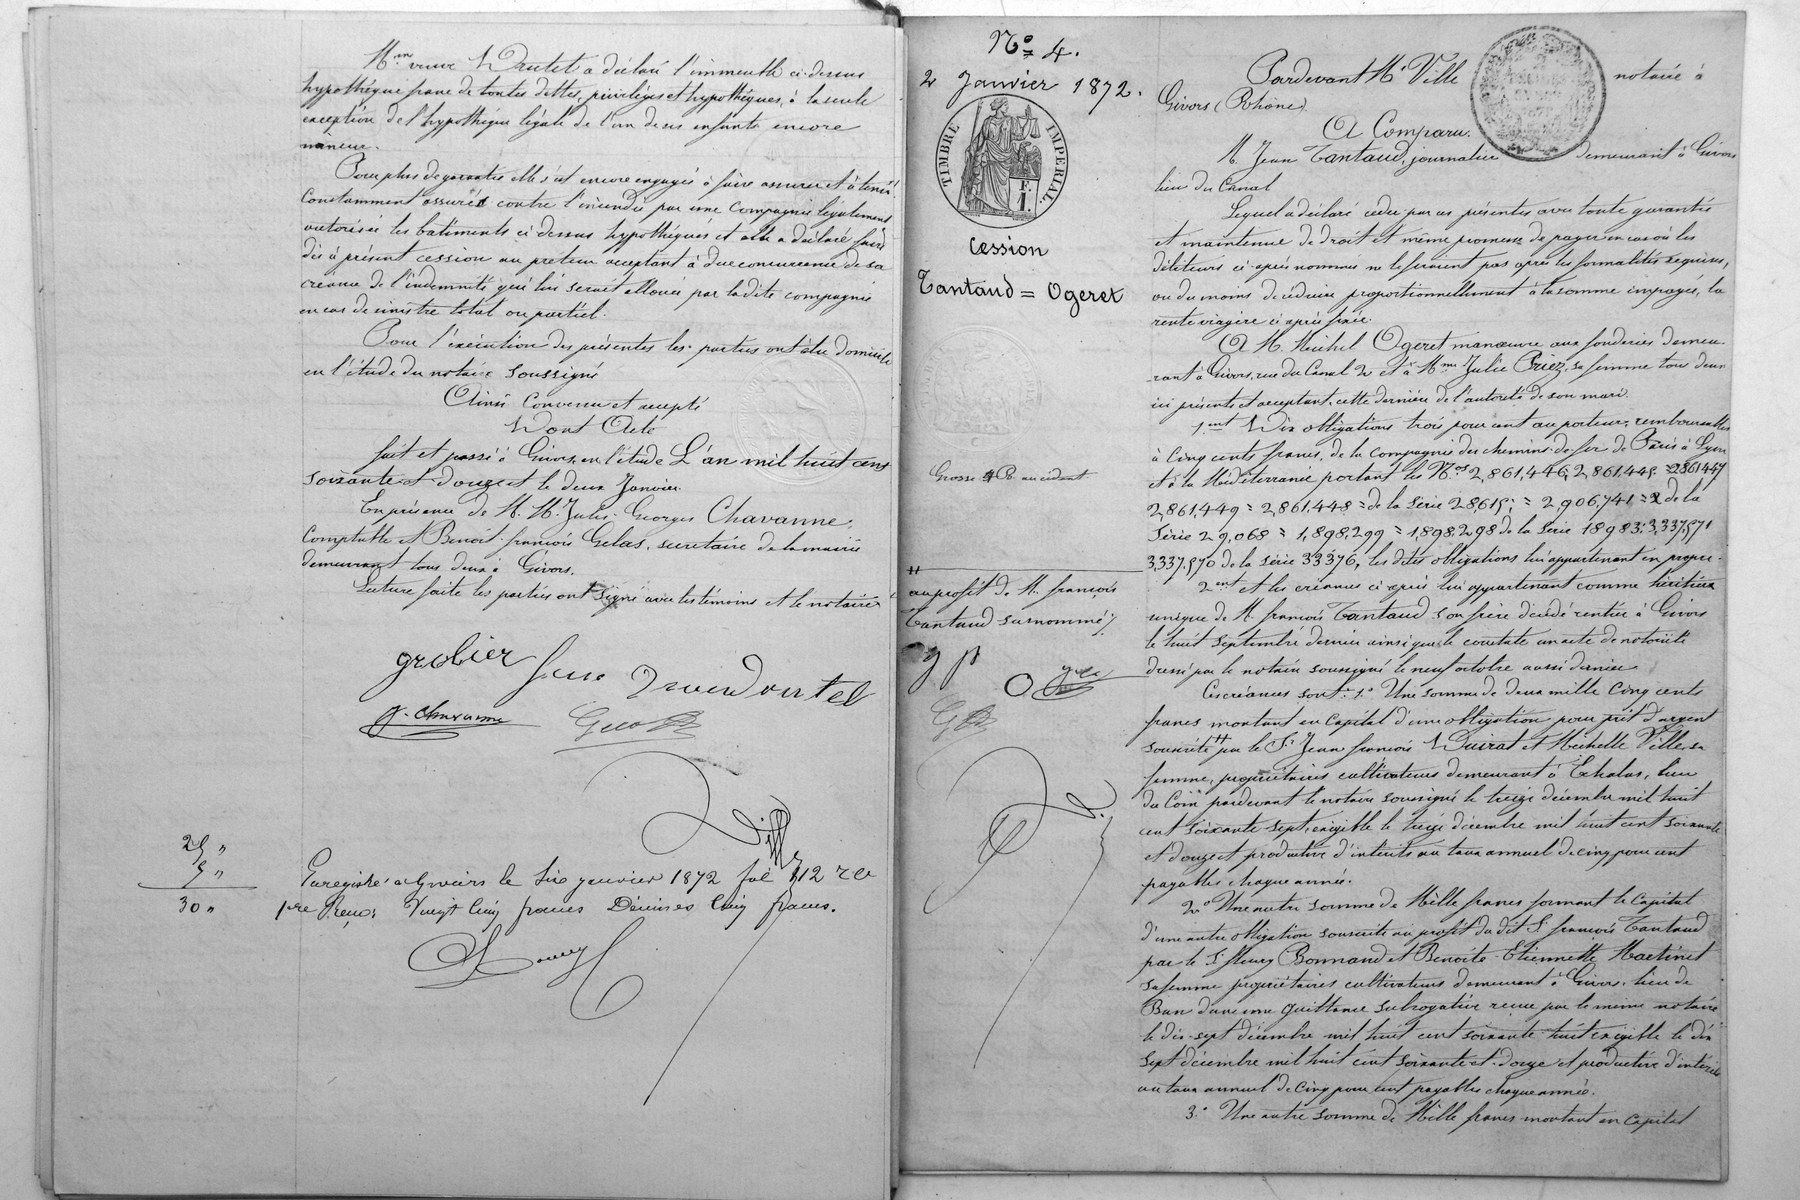 Mme veuve Dautel a déclaré l'immeuble ci-dessus
hypothéqué franc de toutes dettes, privilèges et hypothèques, à la seule
exception de l'hypothèque légale de l'un de ses enfants encore
mineur.
Pour plus de garantie elle s'est encore engagée à faire assurer et à tenir
constamment assurés contre l'incendie par une compagnie légalement
autorisée les bâtiments ci dessus hypothéqués et elle a déclaré faire
dès à présent cession au prêteur acceptant à due concurrence de sa
créance de l'indemnité qui lui serait allouée par la dite compagnie
en cas de sinistre total ou partiel.
Pour l'exécution des présentes les parties ont élu domicile
en l'étude du notaire soussigné
Ainsi convenu et accepté
Dont Acte
fait et passé à Givors, en l'étude L'an mil huit cent
soixante et douze et le deux Janvier.
En présence de M. M. Jules Georges Chavanne,
Comptable et Benoit françois Gelas, secrétaire de la mairie
demeurant tous deux à Givors.
Lecture faite les parties ont signé avec les témoins et le notaire
grobier
J. Chavanne
25 "
5 "
30 "
Enregistré à Givors le six janvier 1872 fol 112 ro
Reçu: Vingt Cinq francs Décimes Cinq francs.
No 4.
2 Janvier 1872.
TIMBRE IMPERIAL
F.
1.
Cession
Tantaud = Ogeret
Grosse
au profit de M. françois
Tantaud susnommé /.
Pardevant Me Ville notaire à
Givors (Rhône)
A Comparu.
M. Jean Tantaud, journalier demeurant à Givors
lieu du Canal
Lequel a déclaré céder par ces présentes avec toute garantie
et maintenue de droit et même promesse de payer en cas où les
débiteurs ci-après nommés ne le feraient pas après les formalités requises,
ou du moins de réduire proportionnellement à la somme impayée, la
rente viagère ci après fixée.
A M. Michel Ogeret manœuvre aux fonderies demeu-
rant à Givors, rue du Canal 2 et à Mme Julie Priez, sa femme tous deux
ici présents et acceptant, cette dernière de l'autorité de son mari.
1ent Dix obligations trois pour cent au porteur, remboursables
à Cinq cents francs, de la Compagnie des chemins de fer de Paris à Lyon
et à la Méditerranée portant les Nos 2,861,446, 2,861,445 = 2861447
2,861,449 = 2,861,448 = de la série 28615; = 2,906,741 = 2 de la
Série 29,068 = 1,898,299 = 1,898,298 de la série 18983; 3,337,571
3,337,570 de la série 33376, les dites obligations lui appartenant en propre
2ent et les créances ci après lui appartenant comme héritier
unique de M. françois Tantaud son frère décédé rentier à Givors
le huit septembre dernier ainsi que le constate un acte de notoriété
dressé par le notaire soussigné le neuf octobre aussi dernier
Ces créances sont: 1o Une somme de deux mille cinq cents
francs montant en capital d'une obligation pour prêt d'argent
souscrite par le Sr Jean françois Duirat et Michelle Ville sa
femme, propriétaires cultivateurs demeurant à Echalas, lieu
du Coin pardevant le notaire soussigné le treize décembre mil huit
cent soixante sept, exigible le treize décembre mil huit cent soixante
et douze et productive d'intérêts au taux annuel de cinq pour cent
payables chaque année.
2o Une autre somme de Mille francs formant le capital
d'une autre obligation souscrite au profit du dit S. françois Tantaud
par le Sr fleury Bonnand et Benoîte Etiennette Martinet
sa femme propriétaires cultivateurs demeurant à Givors, lieu de
Ban dans une quittance subrogative reçue par le même notaire
le dix-sept décembre mil huit cent soixante huit exigible le dix
sept décembre mil huit cent soixante et douze et productive d'intérêts
au taux annuel de cinq pour cent payables chaque année.
3o Une autre somme de Mille francs montant en capital